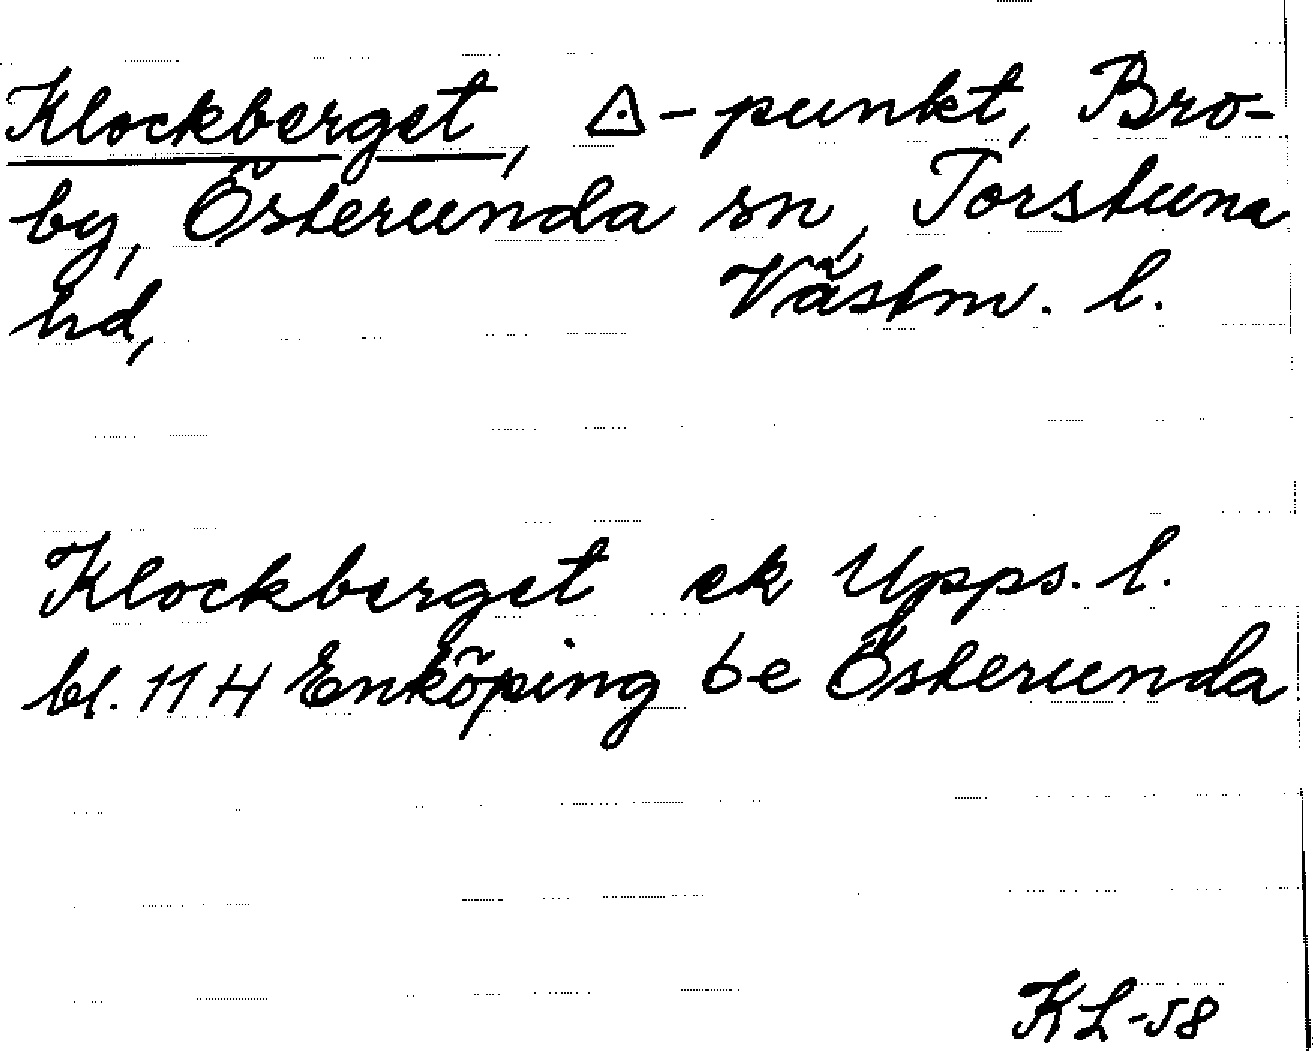 Klockberget, △-punkt, Bro-
by, Österunda sn, Torstuna
hd, Västm. l.
Klockberget ek Upps. l.
bl. 11 H Enköping 6e Österunda
KL-58